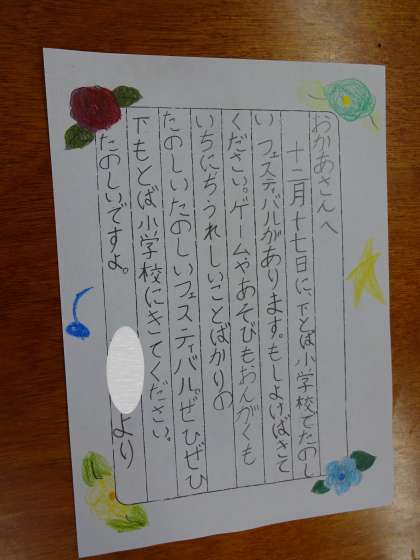 おかあさんへ
十二月十七日に、下とば小学校でたのし
い フェスティバルがあります。もしよければきて
ください。ゲームやあそびもおんがくも
いちにちうれしいことばかりの
たのしいたのしいフェスティバル。ぜひぜひ
下もとば小学校にきてください。
たのしいですよ。
より